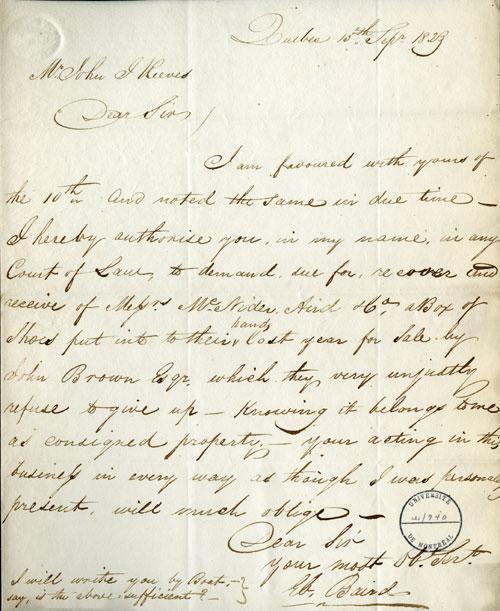 Quebec 15th Sepr 1823
Mr. John J Reeves
Dear Sir,
I am favoured with yours of
the 10th And noted the same in due time –
I hereby authorise you, in my name, in any
Court of Law, to demand, sue for, recover and
receive of Messrs McNider, Aird & Co. a Box of
Shoes put into their hands last year for Sale by
John Brown Esqr, which they very unjustly
refuse to give up – Knowing it belongs to me
as consigned property, – your acting in this
business in every way as though I was personally
present, will much oblige –
Dear Sir
your most Ob. Sert.
Baird
I will write you by Boat, –
say, is the above sufficient? –
UNIVERSITÉ
DE MONTRÉAL